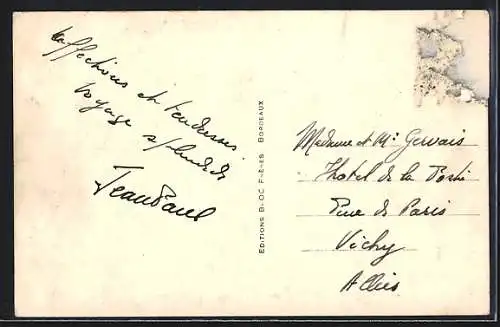 affections et tendresses
voyage splendide
Jean Paul
EDITIONS BLOC FRERES BORDEAUX
Madame et Mr Gervais
Hotel de la Poste
Rue de Paris
Vichy
Allier